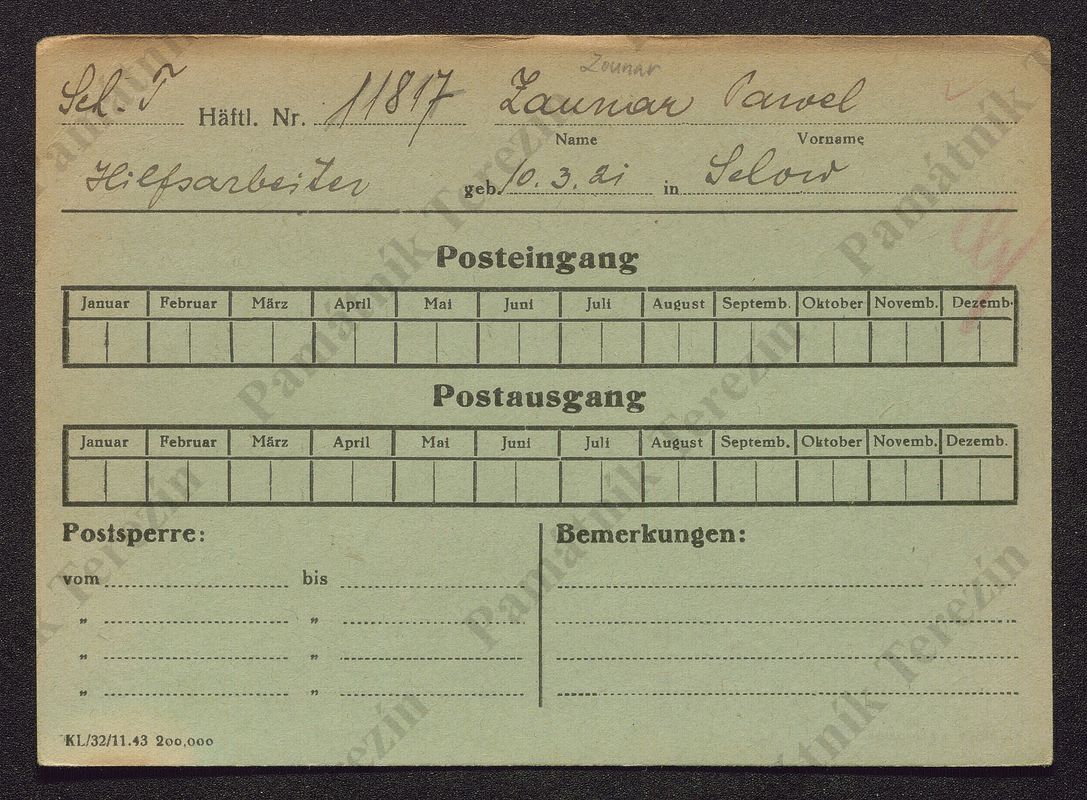 Zounar
Sch. T Häftl. Nr. 11817 Zaunar Pawel
Name Vorname
Hilfsarbeiter geb. 10.3.21 in Selow
Posteingang
Januar Februar März April Mai Juni Juli August Septemb. Oktober Novemb. Dezemb.
Postausgang
Januar Februar März April Mai Juni Juli August Septemb. Oktober Novemb. Dezemb.
Postsperre: Bemerkungen:
vom bis
„ „
„ „
„ „
KL/32/11.43 200,000
Památník Terezín